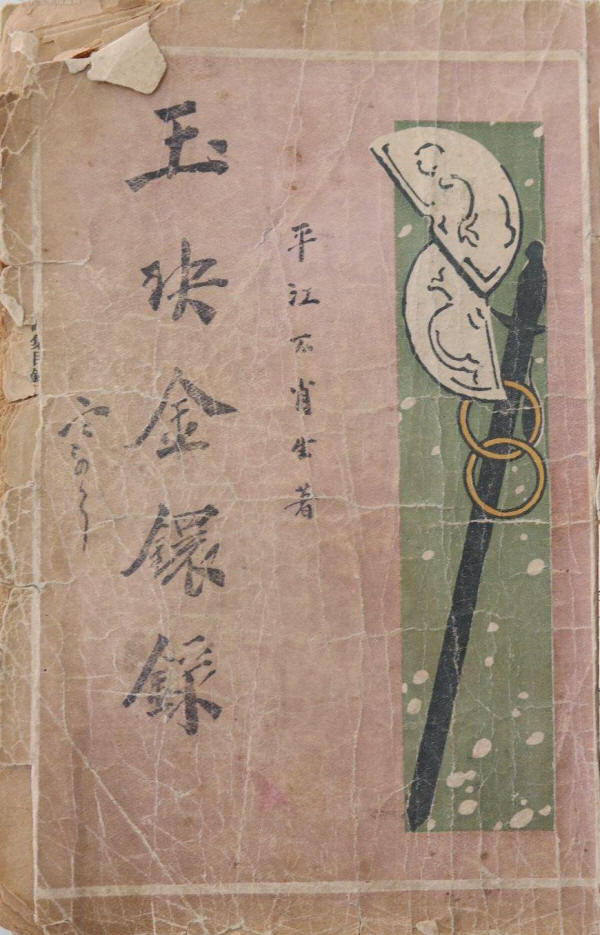 平江不肖生著
玉玦金鐶録